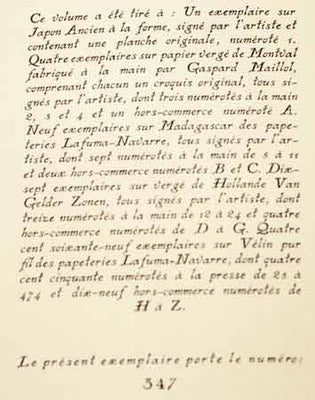 Ce volume a été tiré à : Un exemplaire sur
Japon Ancien à la forme, signé par l'artiste et
contenant une planche originale, numéroté 1.
Quatre exemplaires sur papier vergé de Montval
fabriqué à la main par Gaspard Maillol,
comprenant chacun un croquis original, tous si-
gnés par l'artiste, dont trois numérotés à la main
2, 3 et 4 et un hors-commerce numéroté A.
Neuf exemplaires sur Madagascar des pape-
teries Lafuma-Navarre, tous signés par l'ar-
tiste, dont sept numérotés à la main de 5 à 11
et deux hors-commerce numérotés B et C. Dix-
sept exemplaires sur vergé de Hollande Van
Gelder Zonen, tous signés par l'artiste, dont
treize numérotés à la main de 12 à 24 et quatre
hors-commerce numérotés de D à G. Quatre
cent soixante-neuf exemplaires sur Vélin pur
fil des papeteries Lafuma-Navarre, dont quatre
cent cinquante numérotés à la presse de 25 à
474 et dix-neuf hors-commerce numérotés de
H à Z.
Le présent exemplaire porte le numéro:
347